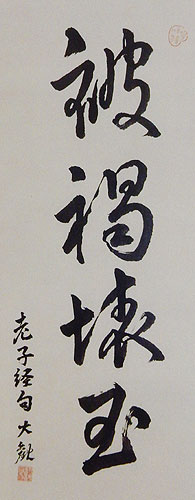 被褐懐玉
老子経句 大